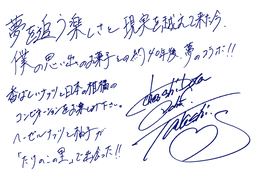 夢を追う楽しさと現実を越えて来たら、
僕の思い出のお菓子との約40年後、夢のコラボ!!
香ばしいナッツと日本の柑橘の
コンビネーションをお楽しみ下さい。
ヘーゼルナッツと柚子が
「たけのこの里」で出会った!!